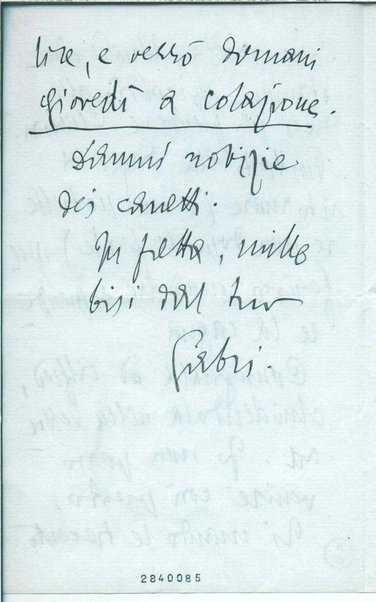 lire, e verrò domani
giovedì a colazione.
Dammi notizie
dei canetti.
In fretta, mille
bisi dal tuo
Gabri.
2840085